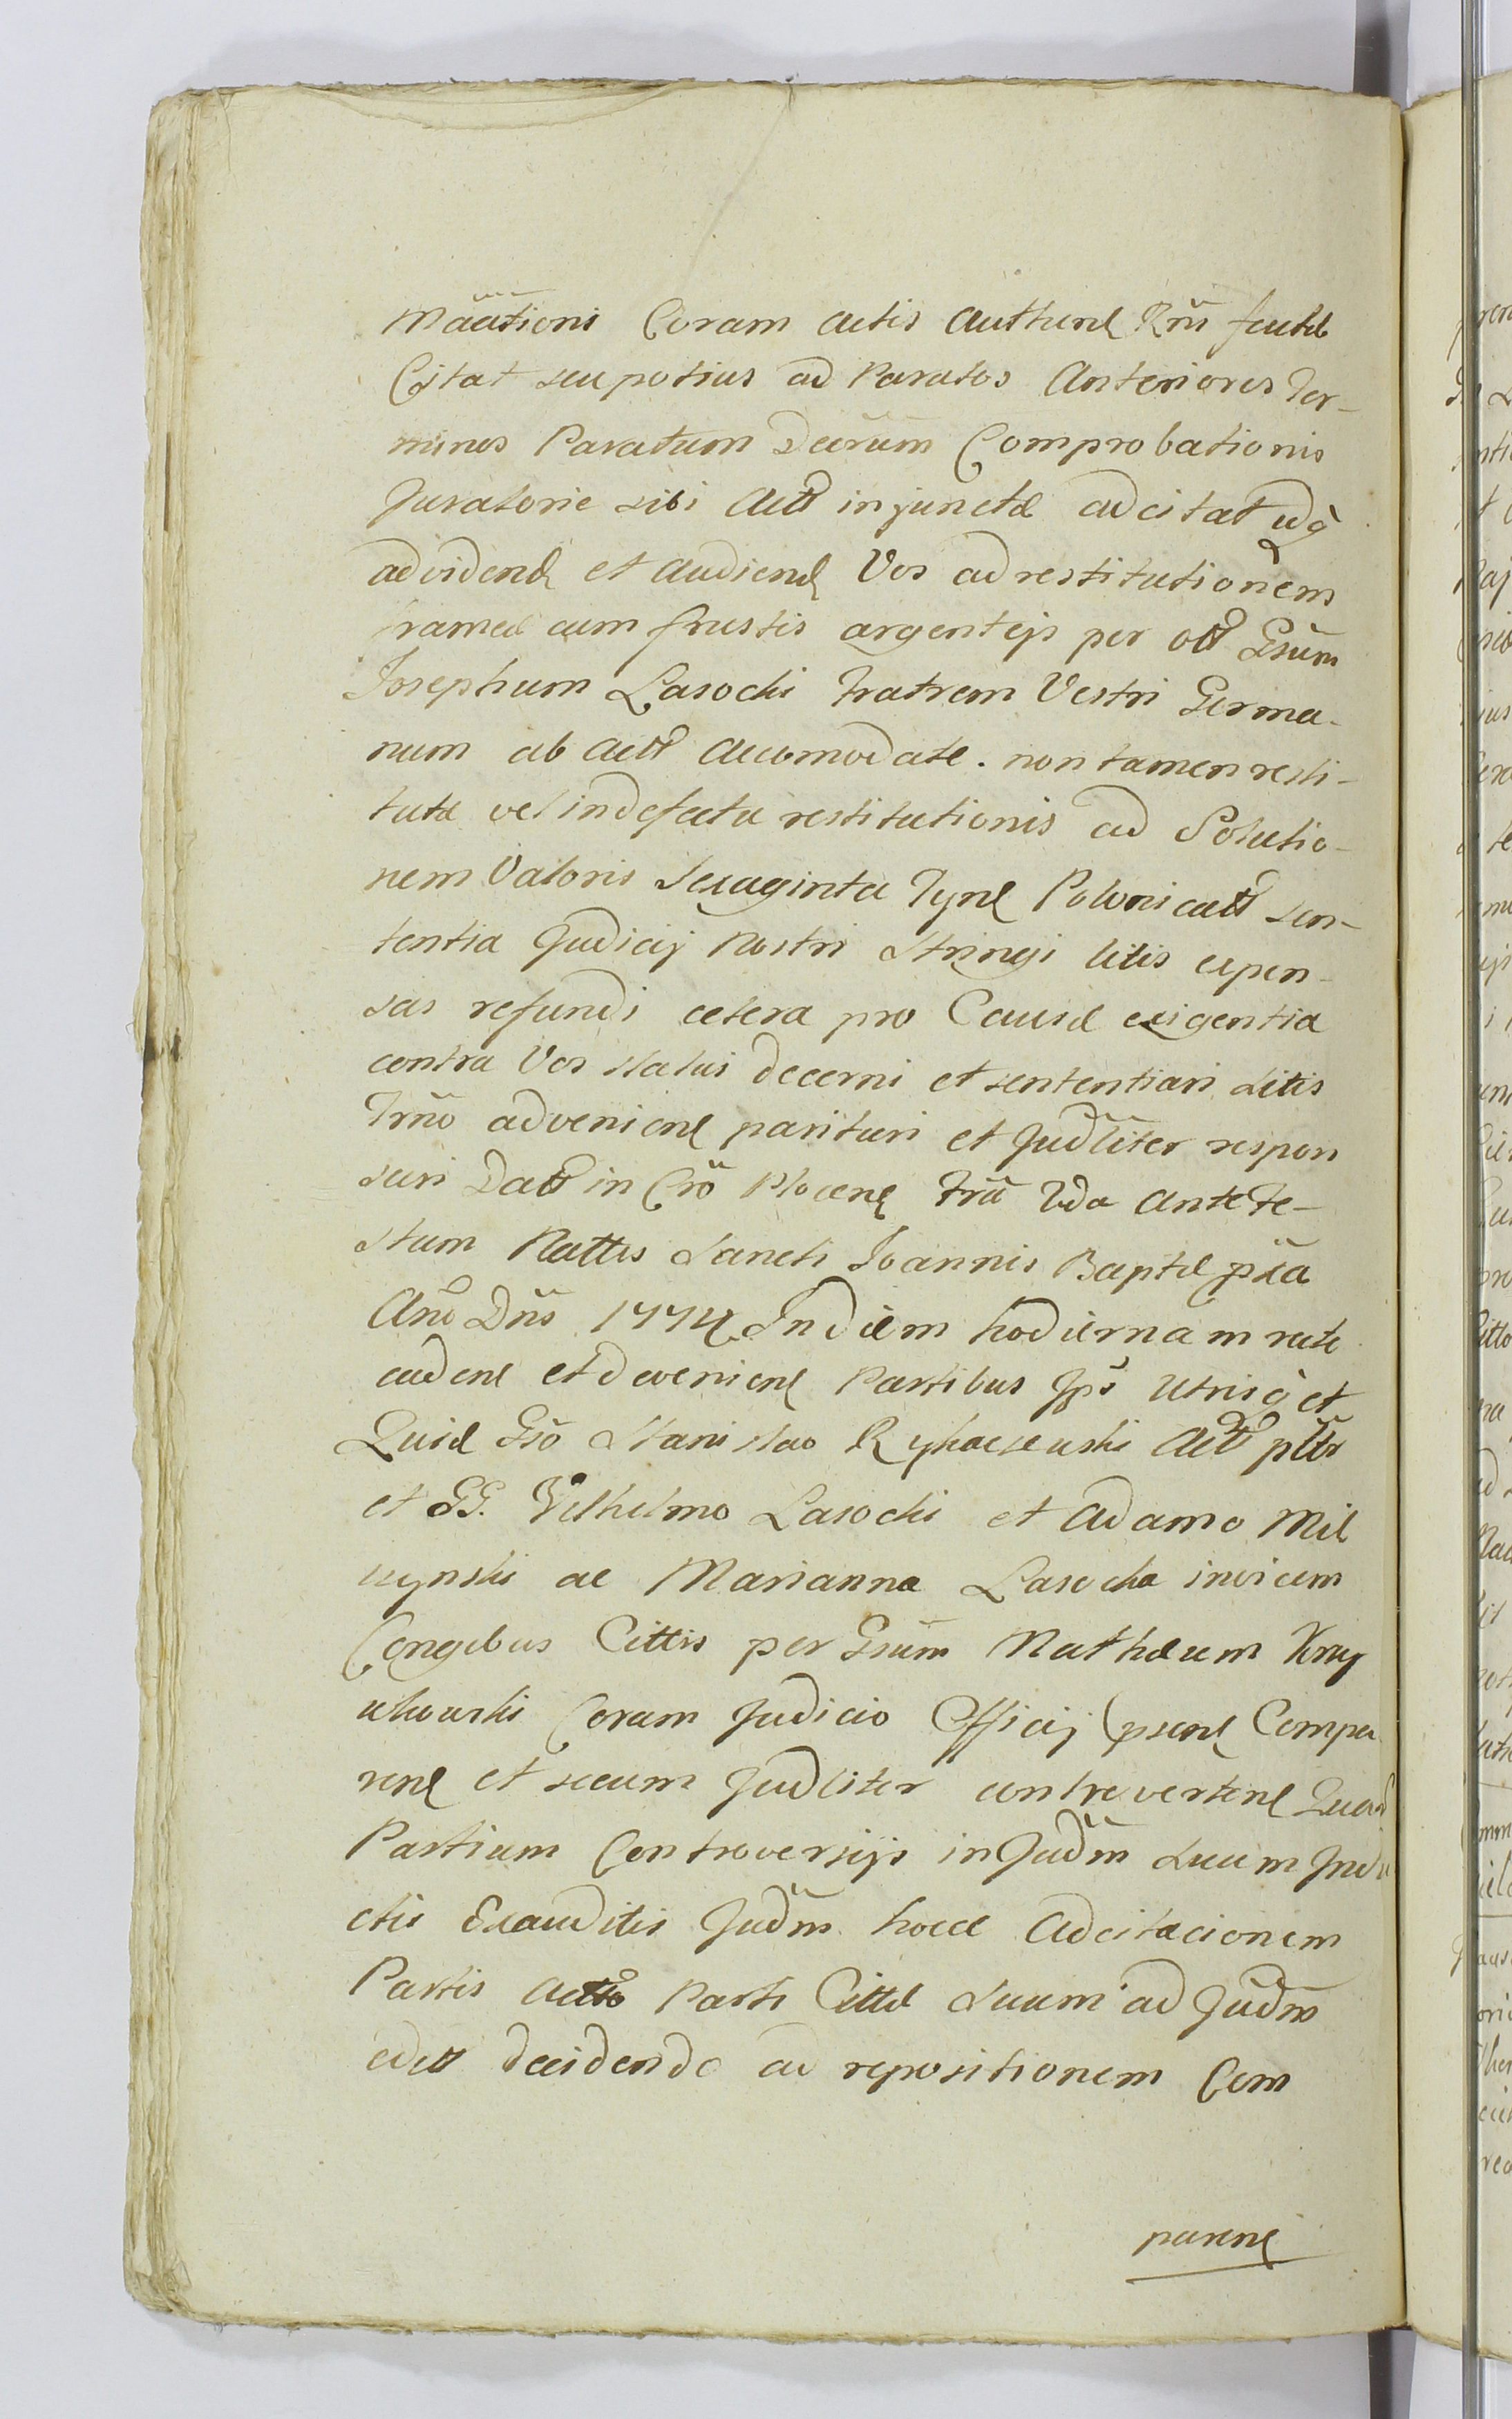 Mãātioni Coram actis Authend Rnri
Citat seu potius ad Paratos Anteriores Ter-
minos Paratum Decrum Comprobationis
Juratorie sibi Actt injunctæ adcitat idq
ad vidend et audiend Vos ad restitutionem
frameæ cum frustis argenteijs per ott Gsum
Josephum Lasocki Fratrem Vestri Germa-
num ab actt Accomodatæ. non tamen resti-
tutæ vel in defectu restitutionis ad Solutio-
nem Valoris Sexaginta Tynf Polonicatt sen-
tentia Judicij Nostri Stringi litis expen-
sas refundi cetera pro Causæ exigentia
contra Vos statui decerni et sententiari Litis
Trno advenient parituri et Judliter respon
suri Datt in Cro Plocen fria 2da ante Fe-
stum Nattis Sancti Joannis Baptæ pxia
Ano Dni 1774 In Diem hodiernam rite
cadent et devenient Partibus Ips Utrisq et
Quid Gso Stanislao Rychaczewski Actt pttr
et GG. Vilhelmo Lasocki et Adamo Mil
czynski ac Marianna Lasocka invicem
Congibus Cittis per Gsum Mathæum Kray
Coram Judicio Officij psent Compa
rent et secum Judliter controvertent Quar
Partium Controversijs in Judm suum Indu
ctis Exauditis Judm hocce Adcitacionem
Partis Acttо Parti Cittæ Suum ad Judm
editt decidendo ad repositionem Com
parent